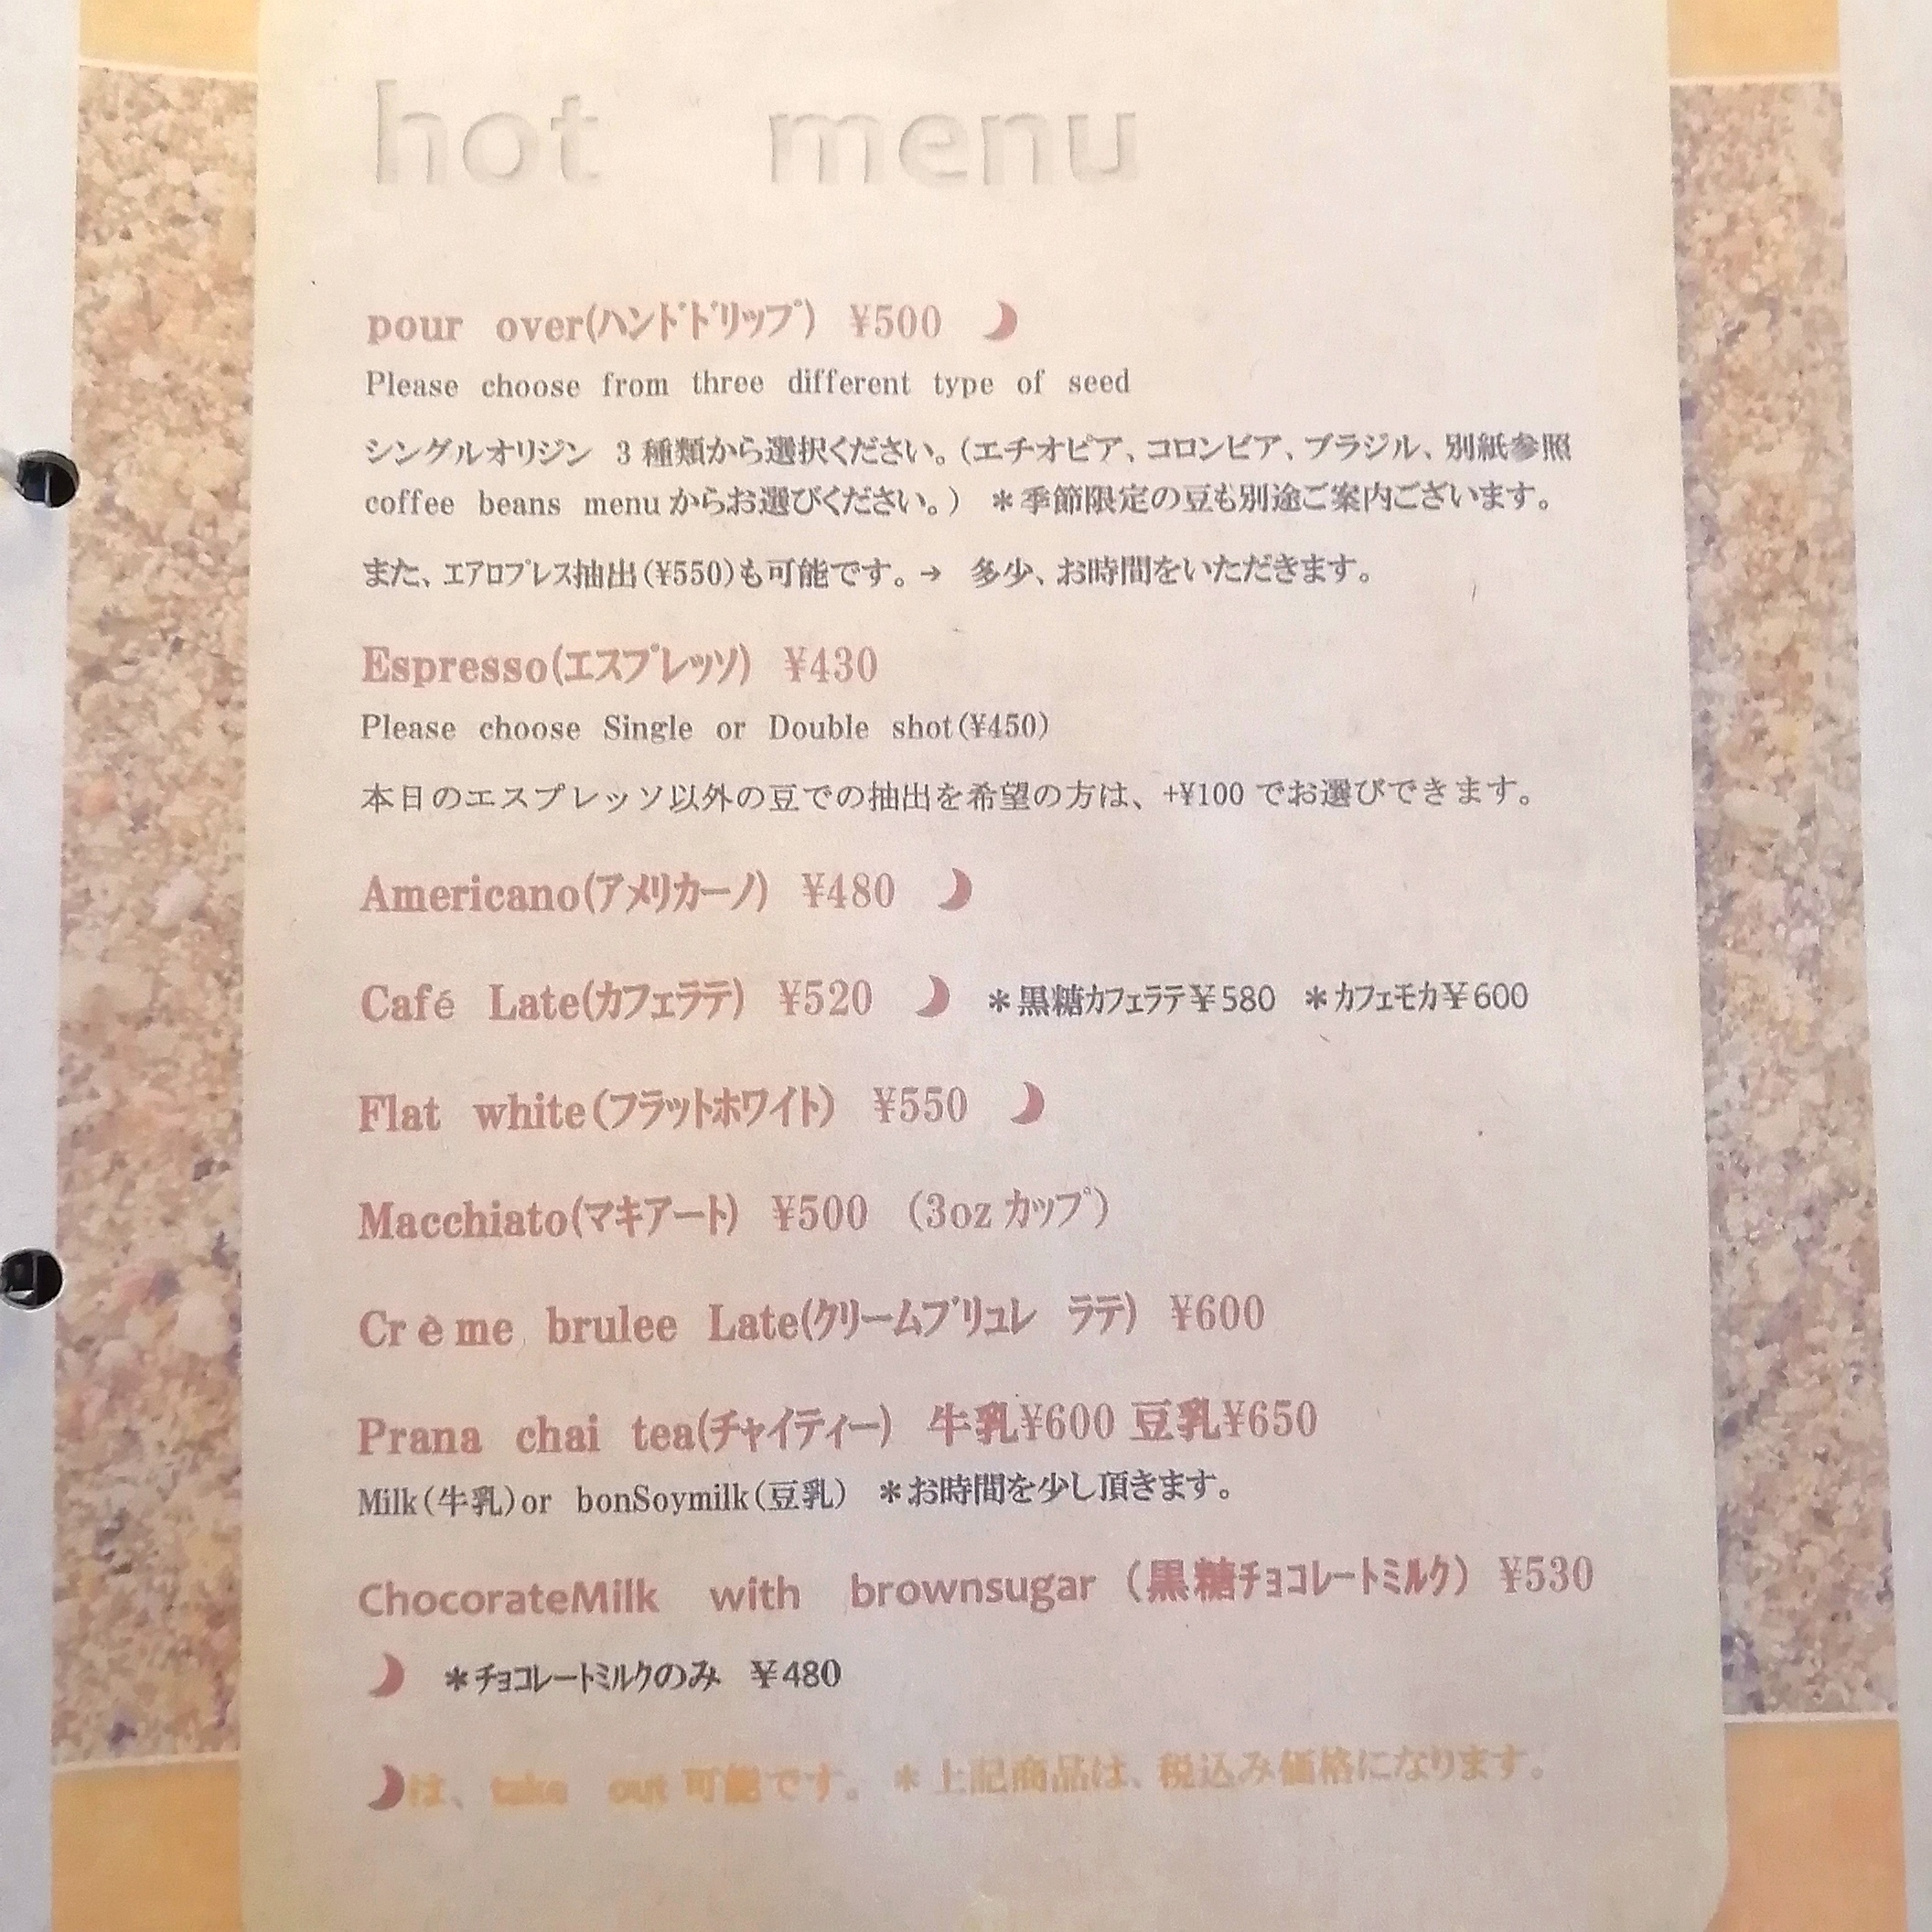 hot menu
pour over(ハンドドリップ) ¥500
Please choose from three different type of seed
シングルオリジン 3種類から選択ください。(エチオピア、コロンビア、ブラジル、別紙参照
coffee beans menuからお選びください。) ＊季節限定の豆も別途ご案内ございます。
また、エアロプレス抽出(¥550)も可能です。→ 多少、お時間をいただきます。
Espresso(エスプレッソ) ¥430
Please choose Single or Double shot(¥450)
本日のエスプレッソ以外の豆での抽出を希望の方は、+¥100でお選びできます。
Americano(アメリカーノ) ¥480
Café Late(カフェラテ) ¥520 ＊黒糖カフェラテ￥580 ＊カフェモカ￥600
Flat white(フラットホワイト) ¥550
Macchiato(マキアート) ¥500 (3ozカップ)
Crème brulee Late(クリームブリュレ ラテ) ¥600
Prana chai tea(チャイティー) 牛乳¥600 豆乳¥650
Milk(牛乳)or bonSoymilk(豆乳) ＊お時間を少し頂きます。
ChocorateMilk with brownsugar (黒糖チョコレートミルク) ¥530
＊チョコレートミルクのみ ￥480
は、take out可能です。 ＊上記商品は、税込み価格になります。